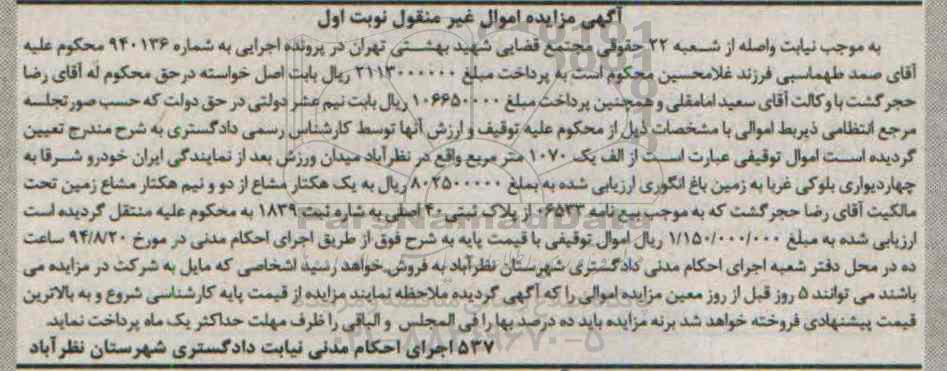 آگهی مزایده اموال غیر منقول نوبت اول
به موجب نیابت واصله از شعبه ۲۲ حقوقی مجتمع قضایی شهید بهشتی تهران در پرونده اجرایی به شماره ۹۴۰۱۳۶ محکوم علیه
آقای صمد طهماسبی فرزند غلامحسین محکوم است به پرداخت مبلغ ۲۱۱۳۰۰۰۰۰۰ ریال بابت اصل خواسته درحق محکوم له آقای رضا
حجر گشت با وکالت آقای سعید امامقلی و همچنین پرداخت مبلغ ۱۰۶۶۵۰۰۰۰ ریال بابت نیم عشر دولتی در حق دولت که حسب صورتجلسه
مرجع انتظامی ذیربط اموالی با مشخصات ذیل از محکوم علیه توقیف و ارزش آنها توسط کارشناس رسمی دادگستری به شرح مندرج تعیین
گردیده است اموال توقیفی عبارت است از الف یک ۱۰۷۰ متر مربع واقع در نظرآباد میدان ورزش بعد از نمایندگی ایران خودرو شرقا به
چهاردیواری بلوکی غربا به زمین باغ انگوری ارزیابی شده به بملغ ۸۰۲۵۰۰۰۰۰ ریال به یک هکتار مشاع از دو و نیم هکتار مشاع زمین تحت
مالکیت آقای رضا حجرگشت که به موجب بیع نامه ۰۶۵۳۳ از پلاک ثبتی ۴۰ اصلی به شاره ثبت ۱۸۳۹ به محکوم علیه منتقل گردیده است
ارزیابی شده به مبلغ ۱/۱۵۰/۰۰۰/۰۰۰ ریال اموال توقیفی با قیمت پایه به شرح فوق از طریق اجرای احکام مدنی در مورخ ۹۴/۸/۲۰ ساعت
ده در محل دفتر شعبه اجرای احکام مدنی دادگستری شهرستان نظرآباد به فروش خواهد رسید اشخاصی که مایل به شرکت در مزایده می
باشند می توانند ۵ روز قبل از روز معین مزایده اموالی را که آگهی گردیده ملاحظه نمایند مزایده از قیمت پایه کارشناسی شروع و به بالاترین
قیمت پیشنهادی فروخته خواهد شد برنه مزایده باید ده درصد بها را فی المجلس و الباقی را ظرف مهلت حداکثر یک ماه پرداخت نماید.
۵۳۷ اجرای احکام مدنی نیابت دادگستری شهرستان نظرآباد
ParsNamadData